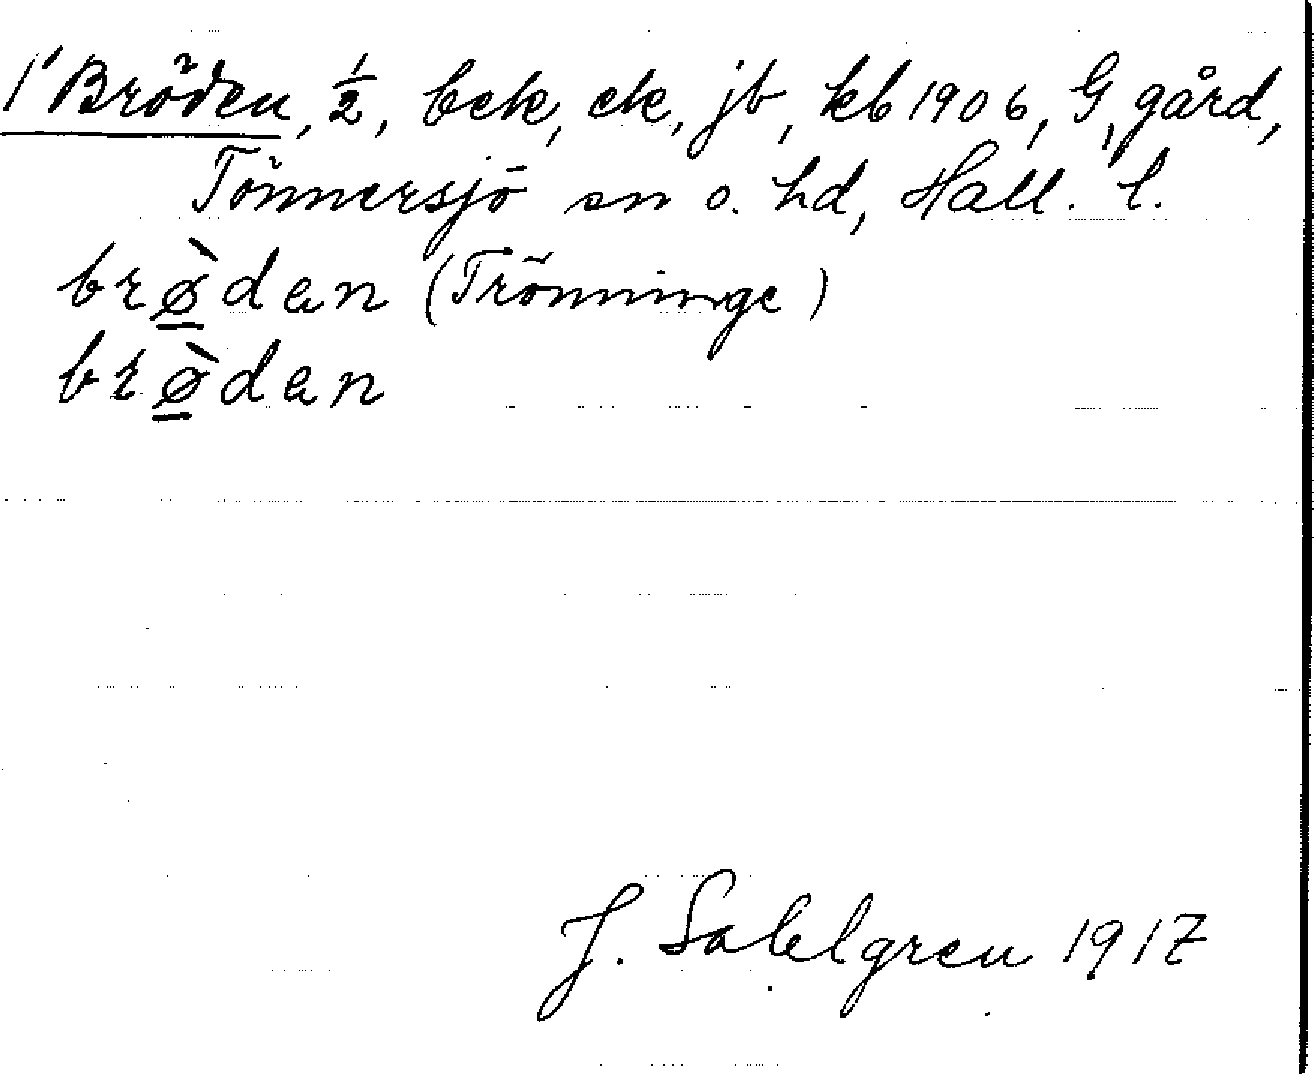 1' Bröden, ½, bek, ek, jb, kb 1906, G, gård,
Tönnersjö sn o. hd, Hall. l.
brø̲̀dan (Trönninge)
brø̲̀dan
J. Sahlgren 1917